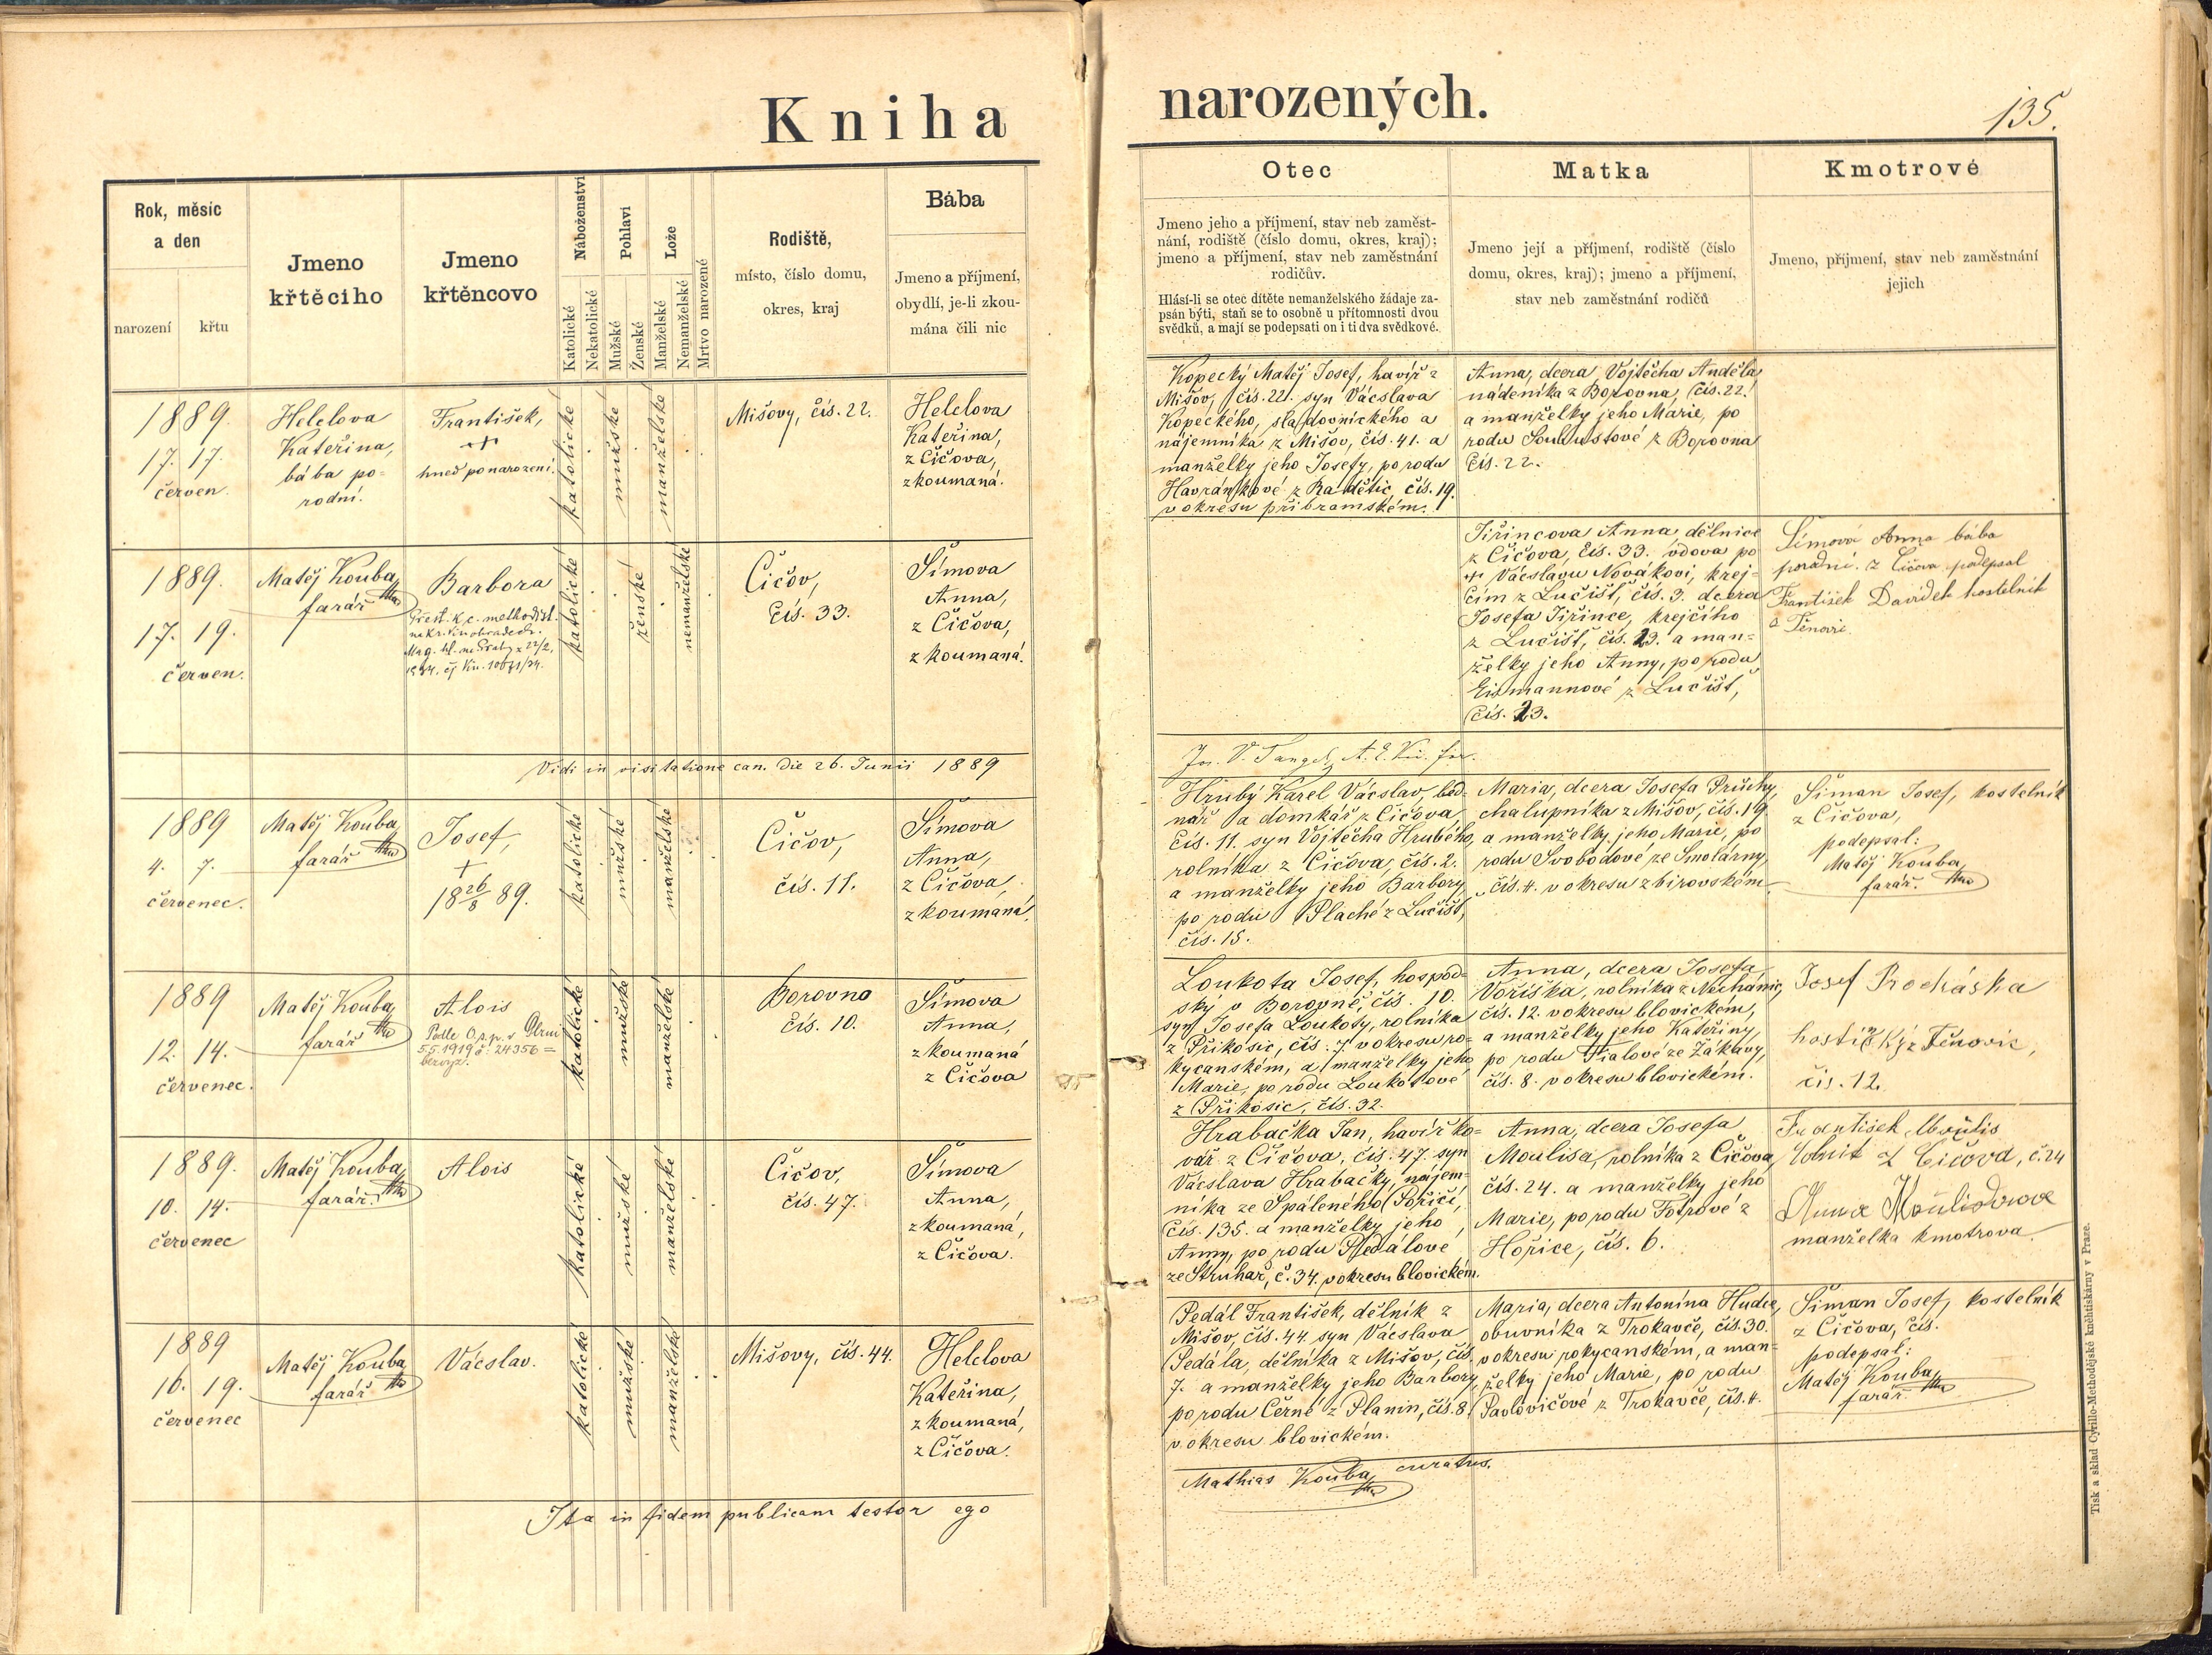 Kniha narozených.
135.
Rok, měsíc
a den
narození
křtu
Jmeno
křtěcího
Jmeno
křtěncovo
Náboženství
Katolické
Nekatolické
Pohlaví
Mužské
Ženské
Lože
Manželské
Nemanželské
Mrtvo narozené
Rodiště,
místo, číslo domu,
okres, kraj
Bába
Jmeno a příjmení,
obydlí, je-li zkou-
mána čili nic
Otec
Jmeno jeho a příjmení, stav neb zaměst-
nání, rodiště (číslo domu, okres, kraj);
jmeno a příjmení, stav neb zaměstnání
rodičův.
Hlásí-li se otec dítěte nemanželského žádaje za-
psán býti, staň se to osobně u přítomnosti dvou
svědků, a mají se podepsati on i ti dva svědkové.
Matka
Jmeno její a příjmení, rodiště (číslo
domu, okres, kraj); jmeno a příjmení,
stav neb zaměstnání rodičů
Kmotrové
Jmeno, příjmení, stav neb zaměstnání
jejich
1889.
17. 17.
červen.
Helclova
Kateřina,
bába po-
rodní.
František,
+
hned po narození.
katolické
mužské
manželské
Mišovy, čís. 22.
Helclova
Kateřina,
z Čičova,
zkoumaná.
Kopecký Matěj Josef, havíř z
Mišov, čís. 22. syn Václava
Kopeckého, sladovnického a
nájemníka z Mišov, čís. 41. a
manželky jeho Josefy, po rodu
Havránkové z Radětic, čís. 19.
v okresu příbramském.
Anna, dcera Vojtěcha Anděla
nádeníka z Borovna, čís. 22.
a manželky jeho Marie, po
rodu z Borovna
čís. 22.
1889.
17. 19.
červen.
Matěj Kouba,
farář
Barbora
Přest. k c. methodist.
na Kr. Vinohradech.
Mag. hl. m. Prahy z 22/2.
katolické
ženské
nemanželské
Čičov,
čís. 33.
Šímova
Anna,
z Čičova,
zkoumaná.
Jiřincova Anna, dělnice
z Čičova, čís. 33. vdova po
+ Václavu Novákovi, krej-
čím z Lučišť, čís. 3. dcera
Josefa Jiřince, krejčího
z Lučišť, čís. 23. a man-
želky jeho Anny, po rodu
Eismannové z Lučišť,
čís. 23.
Šímová Anna bába
porodní z Čičova podepsal
František Davídek kostelník
z Těnovic.
Vidi in visitatione can. die 26. Junii 1889
1889
4. 7.
červenec.
Matěj Kouba,
farář
Josef,
+
18 26/8 89.
katolické
mužské
manželské
Čičov,
čís. 11.
Šímova
Anna,
z Čičova,
zkoumaná.
Hrubý Karel Václav, bed-
nář a domkář z Čičova,
čís. 11. syn Vojtěcha Hrubého,
rolníka z Čičova, čís. 2.
a manželky jeho Barbory,
po rodu Plaché z Lučišť,
čís. 15.
Maria, dcera Josefa Průchy,
chalupníka z Mišov, čís. 19.
a manželky jeho Marie, po
rodu Svobodové ze Smolárny,
čís. 4. v okresu zbirovském.
Šiman Josef, kostelník
z Čičova,
podepsal:
Matěj Kouba,
farář.
1889
12. 14.
červenec.
Matěj Kouba,
farář
Alois
5.5.1919 č. 24356 =
bezvyz.
katolické
mužské
manželské
Borovno
čís. 10.
Šímova
Anna,
zkoumaná
z Čičova
Loukota Josef, hospod-
ský v Borovně, čís. 10.
syn Josefa Loukoty, rolníka
z Příkosic, čís. 7. v okresu ro-
kycanském, a manželky jeho
Marie, po rodu Loukotové
z Příkosic, čís. 32.
Anna, dcera Josefa
Voříška, rolníka z Nechanic,
čís. 12. v okresu blovickém,
a manželky jeho Kateřiny,
po rodu Fialové ze Žákavy,
čís. 8. v okresu blovickém.
Josef Procháska
hostinský z Těnovic,
čís. 12.
1889.
10. 14.
červenec
Matěj Kouba,
farář.
Alois
katolické
mužské
manželské
Čičov,
čís. 47.
Šímova
Anna,
zkoumaná,
z Čičova.
Hrabačka Jan, havíř ko-
vář z Čičova, čís. 47. syn
Václava Hrabačky, nájem-
níka ze Spáleného Poříčí,
čís. 135. a manželky jeho
Anny, po rodu Pedálové
ze Struhař, č. 34. v okresu blovickém.
Anna, dcera Josefa
Moulisa, rolníka z Čičova,
čís. 24. a manželky jeho
Marie, po rodu Fotrové z
Hořice, čís. 6.
František Moulis
rolník z Čičova, č. 24
Anna Moulisova
manželka kmotrova.
1889
16. 19.
červenec
Matěj Kouba
farář
Václav.
katolické
mužské
manželské
Mišovy, čís. 44.
Helclova
Kateřina,
zkoumaná,
z Čičova.
Pedál František, dělník z
Mišov, čís. 44. syn Václava
Pedála, dělníka z Mišov, čís.
7. a manželky jeho Barbory,
po rodu Černé z Planin, čís. 8.
v okresu blovickém.
Maria, dcera Antonína Hudce,
obuvníka z Trokavče, čís. 30.
v okresu rokycanském, a man-
želky jeho Marie, po rodu
Pavlovičové z Trokavče, čís. 4.
Šiman Josef, kostelník
z Čičova, čís.
podepsal:
Matěj Kouba,
farář.
Ita in fidem publicam testor ego
Mathias Kouba, curatus.
Tisk a sklad Cyrillo-Methodějské knihtiskárny v Praze.